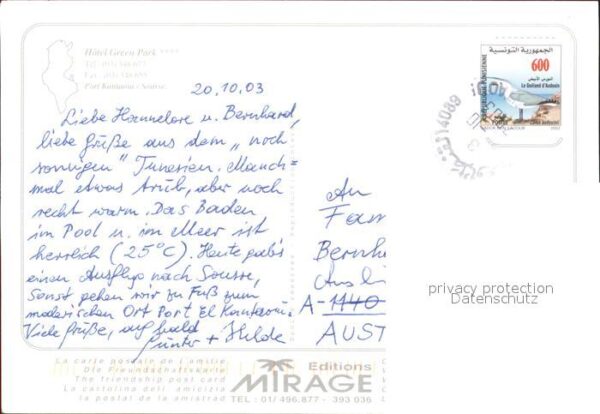 Hôtel Green Park ****
Port Kantaoui / Sousse
20.10.03
Liebe Hannelore u. Bernhard,
liebe Grüße aus dem „noch
sonnigen" Tunesien. Manch-
mal etwas trüb, aber noch
recht warm. Das Baden
im Pool u. im Meer ist
herrlich (25°C). Heute gab's
einen Ausflug nach Sousse,
Sonst gehen wir zu Fuß zum
malerischen Ort Port El Kantaoui.
Viele Grüße, auf bald
Günter + Hilde
الجمهورية التونسية
600
النورس الأبيض
Le Goéland d'Audouin
REPUBLIQUE TUNISIENNE
An
Fam
Bernh
A-1140
AUST
privacy protection
Datenschutz
La carte postale de l'amitie
Die Freundschaftskarte
The friendship post card
La cartolina dell, amicizia
la postal de la amistrad
Editions
MIRAGE
TEL : 01/ 496.877 - 393 036